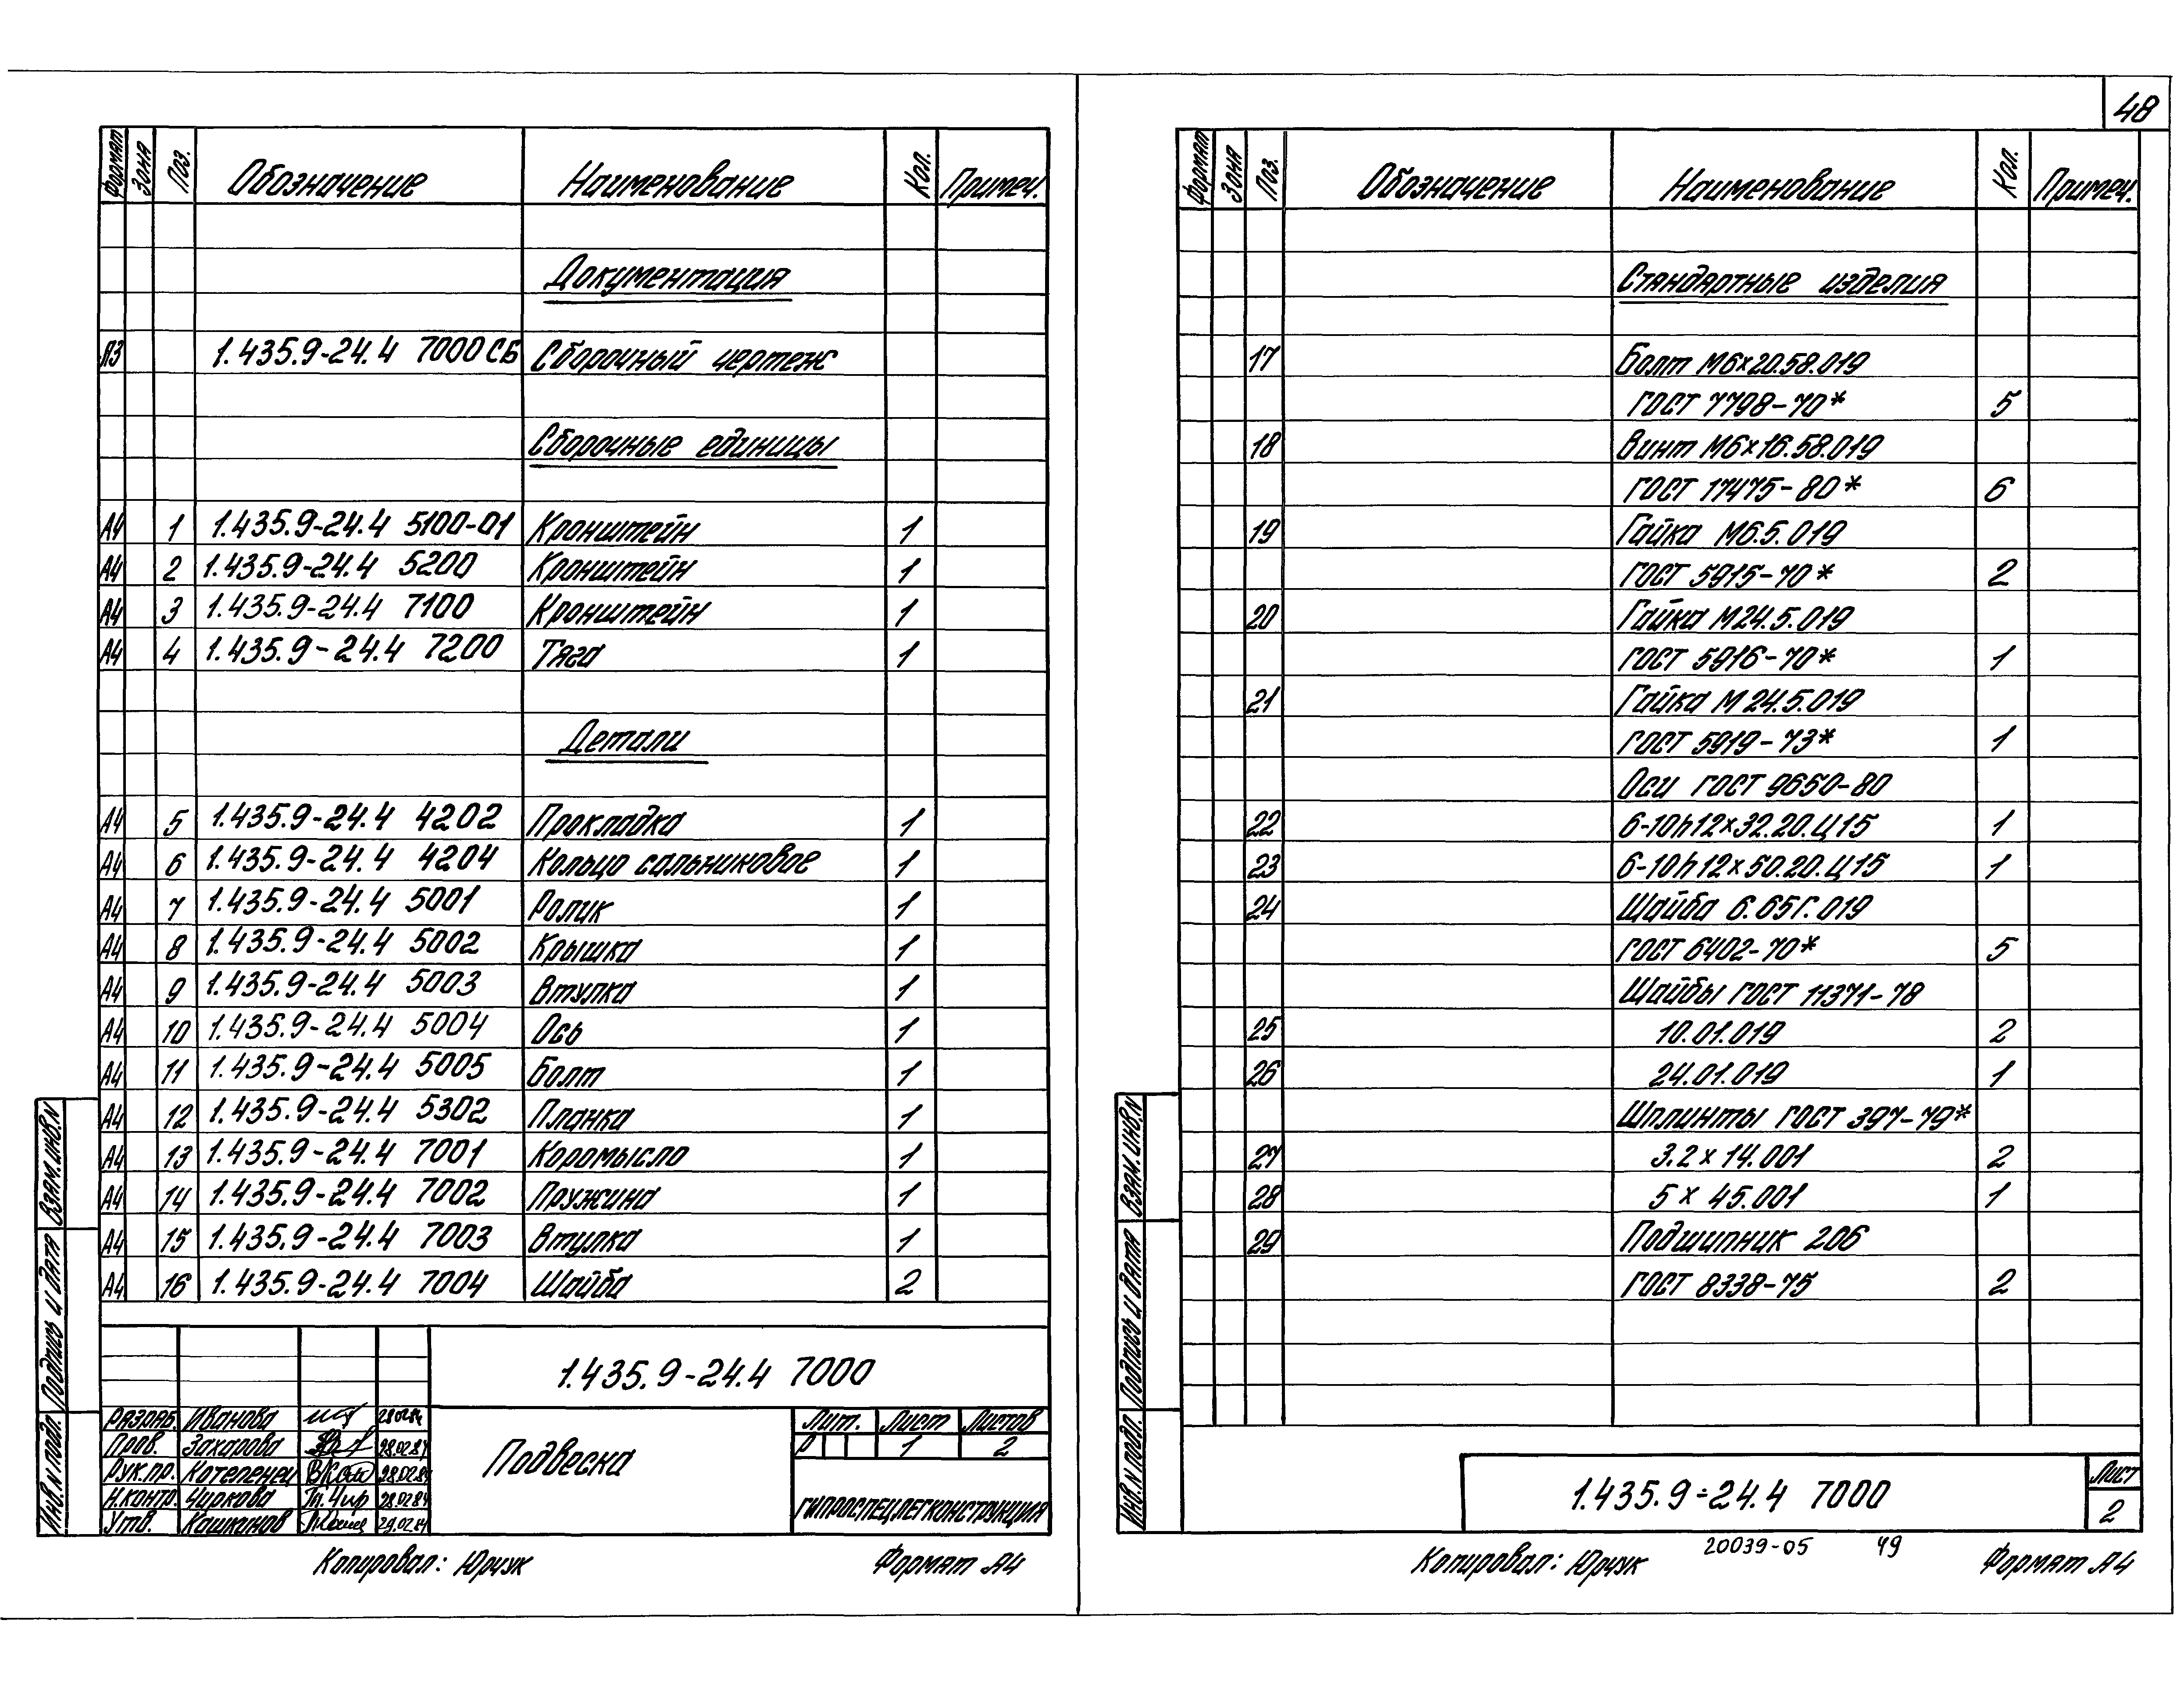 48
Формат Зона Поз. Обозначение Наименование Кол. Примеч.
Документация
А3 1.435.9-24.4 7000СБ Сборочный чертеж
Сборочные единицы
А4 1 1.435.9-24.4 5100-01 Кронштейн 1
А4 2 1.435.9-24.4 5200 Кронштейн 1
А4 3 1.435.9-24.4 7100 Кронштейн 1
А4 4 1.435.9-24.4 7200 Тяга 1
Детали
А4 5 1.435.9-24.4 4202 Прокладка 1
А4 6 1.435.9-24.4 4204 Кольцо сальниковое 1
А4 7 1.435.9-24.4 5001 Ролик 1
А4 8 1.435.9-24.4 5002 Крышка 1
А4 9 1.435.9-24.4 5003 Втулка 1
А4 10 1.435.9-24.4 5004 Ось 1
А4 11 1.435.9-24.4 5005 Болт 1
А4 12 1.435.9-24.4 5302 Планка 1
А4 13 1.435.9-24.4 7001 Коромысло 1
А4 14 1.435.9-24.4 7002 Пружина 1
А4 15 1.435.9-24.4 7003 Втулка 1
А4 16 1.435.9-24.4 7004 Шайба 2
Взам.инв.N
Подпись и дата
Инв.N подл.
1.435.9-24.4 7000
Разраб. Иванова 28.02.84
Пров. Захарова 28.02.84
Рук.пр. Котеленец 28.02.84
Н.контр. Чиркова 28.02.84
Утв. Кашканов 29.02.84
Подвеска
Лит. Лист Листов
Р 1 2
ГИПРОСПЕЦЛЕГКОНСТРУКЦИЯ
Копировал: Юрчук Формат А4
Формат Зона Поз. Обозначение Наименование Кол. Примеч.
Стандартные изделия
17 Болт М6×20.58.019
ГОСТ 7798-70* 5
18 Винт М6×16.58.019
ГОСТ 17475-80* 6
19 Гайка М6.5.019
ГОСТ 5915-70* 2
20 Гайка М24.5.019
ГОСТ 5916-70* 1
21 Гайка М24.5.019
ГОСТ 5919-73* 1
Оси ГОСТ 9650-80
22 6-10h12×32.20.Ц15 1
23 6-10h12×50.20.Ц15 1
24 Шайба 6.65Г.019
ГОСТ 6402-70* 5
Шайбы ГОСТ 11371-78
25 10.01.019 2
26 24.01.019 1
Шплинты ГОСТ 397-79*
27 3.2×14.001 2
28 5×45.001 1
29 Подшипник 206
ГОСТ 8338-75 2
Взам.инв.N
Подпись и дата
Инв.N подл.
1.435.9-24.4 7000
Лист
2
20039-05 49
Копировал: Юрчук Формат А4